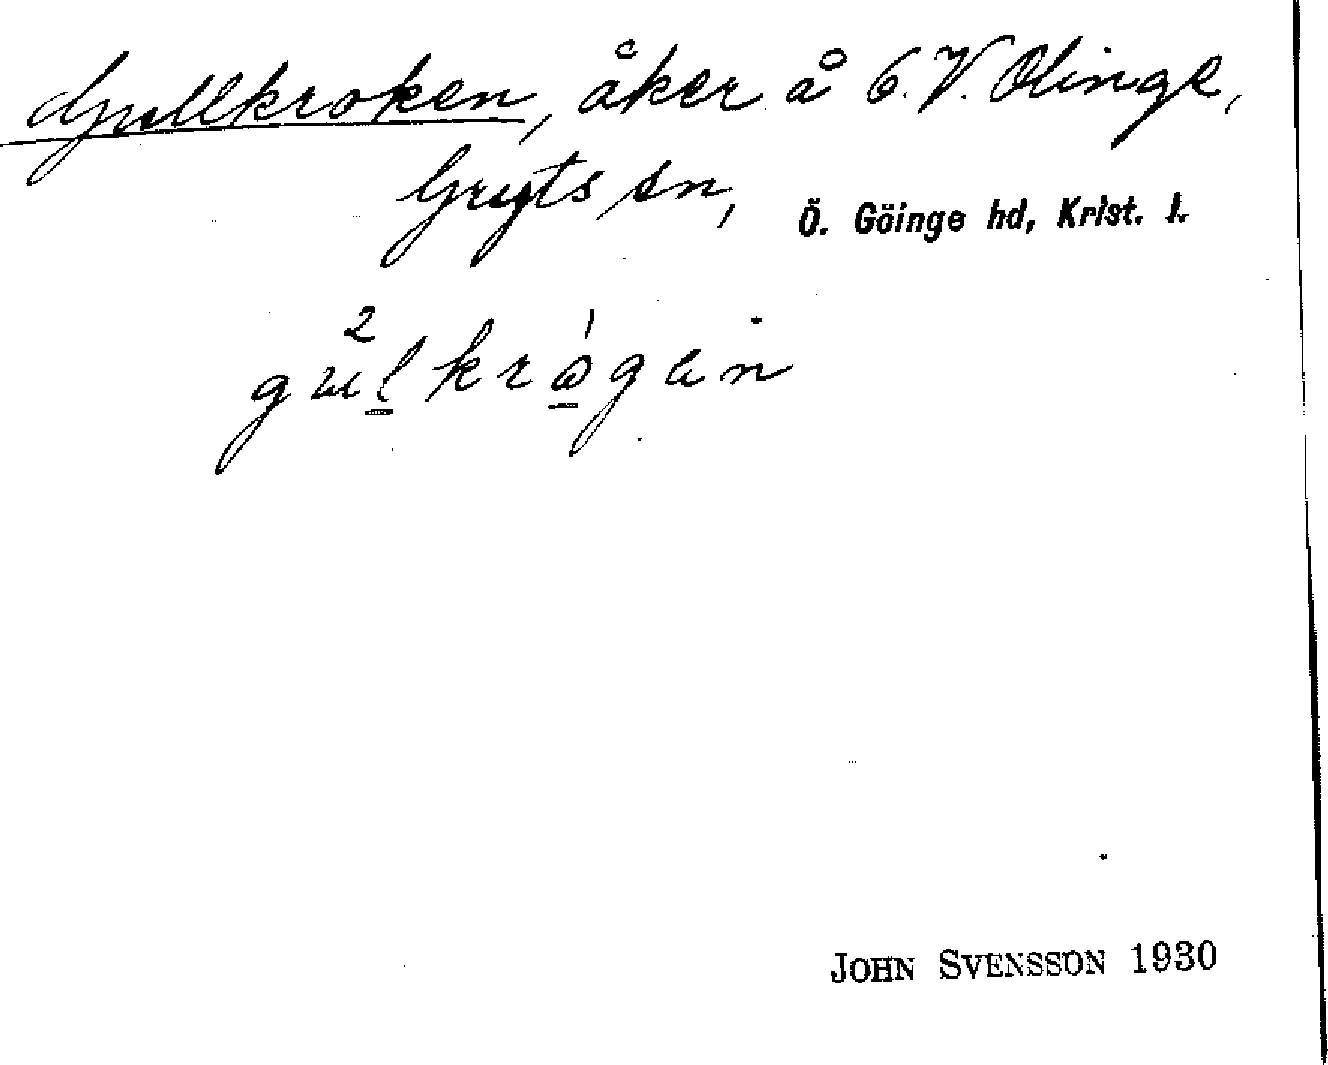 Gullkroken, åker å 6. V. Olinge,
Gryts sn, Ö. Göinge hd, Krist. l.
JOHN SVENSSON 1930